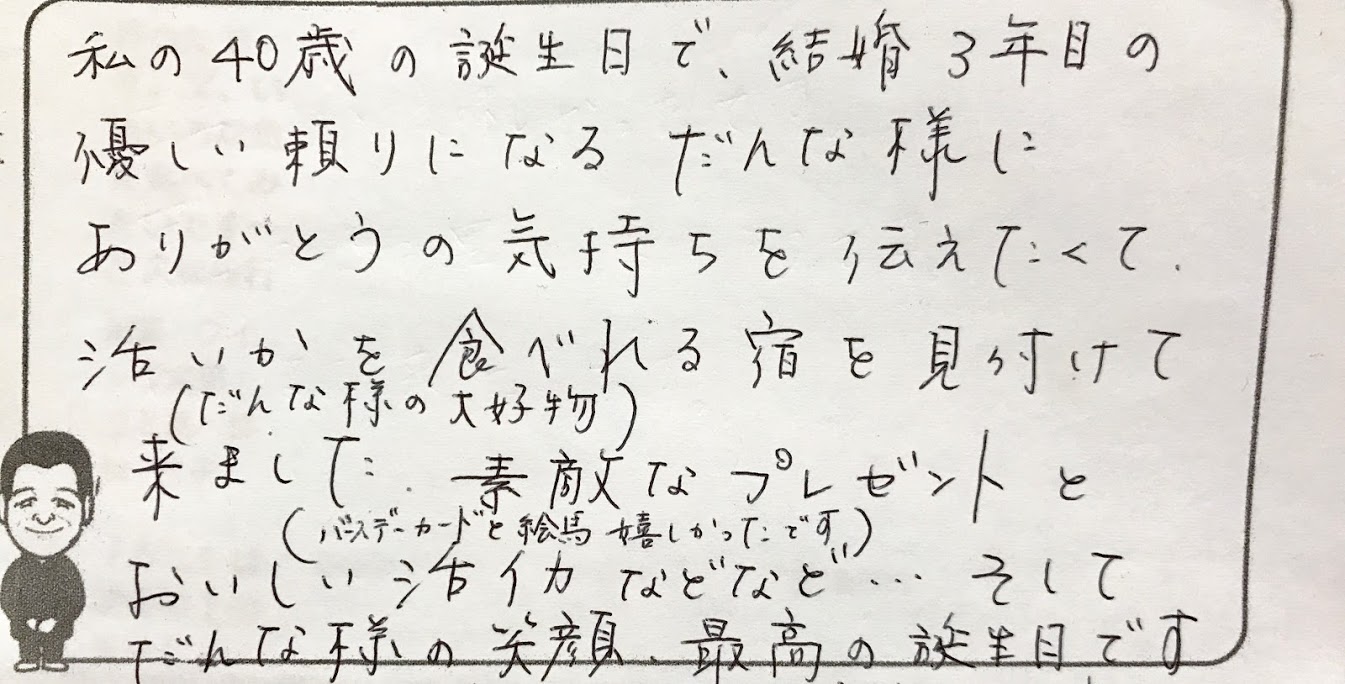 私の40歳の誕生日で、結婚3年目の
優しい頼りになるだんな様に
ありがとうの気持ちを伝えたくて、
活いかを食べれる宿を見付けて
(だんな様の大好物)
来ました。素敵なプレゼントと
(バースデーカードと絵馬嬉しかったです)
おいしい活イカなどなど… そして
だんな様の笑顔、最高の誕生日です